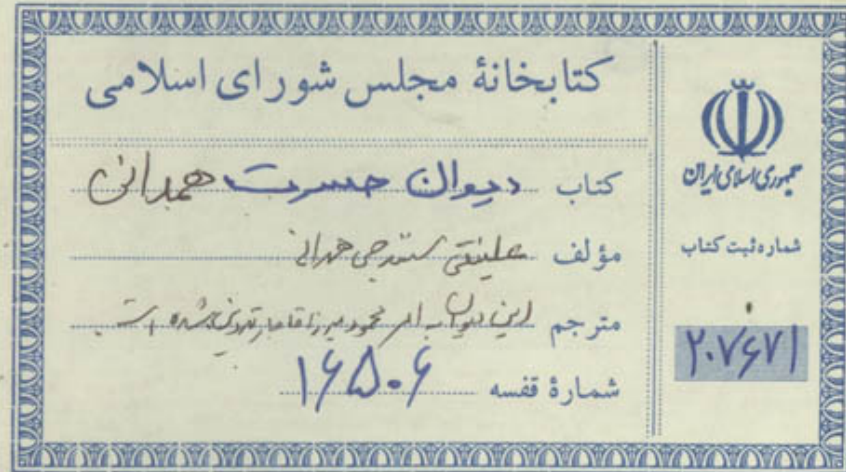 کتابخانهٔ مجلس شورای اسلامی
کتاب دیوان حسرت همدانی
مؤلف علینقی سنندجی همدانی
مترجم این دیوان به امر محمود میرزا قاجار تدوین شده است.
شمارهٔ قفسه ۱۶۵۰۶
جمهوری اسلامی ایران
شماره ثبت کتاب
۲۰۷۶۷۱